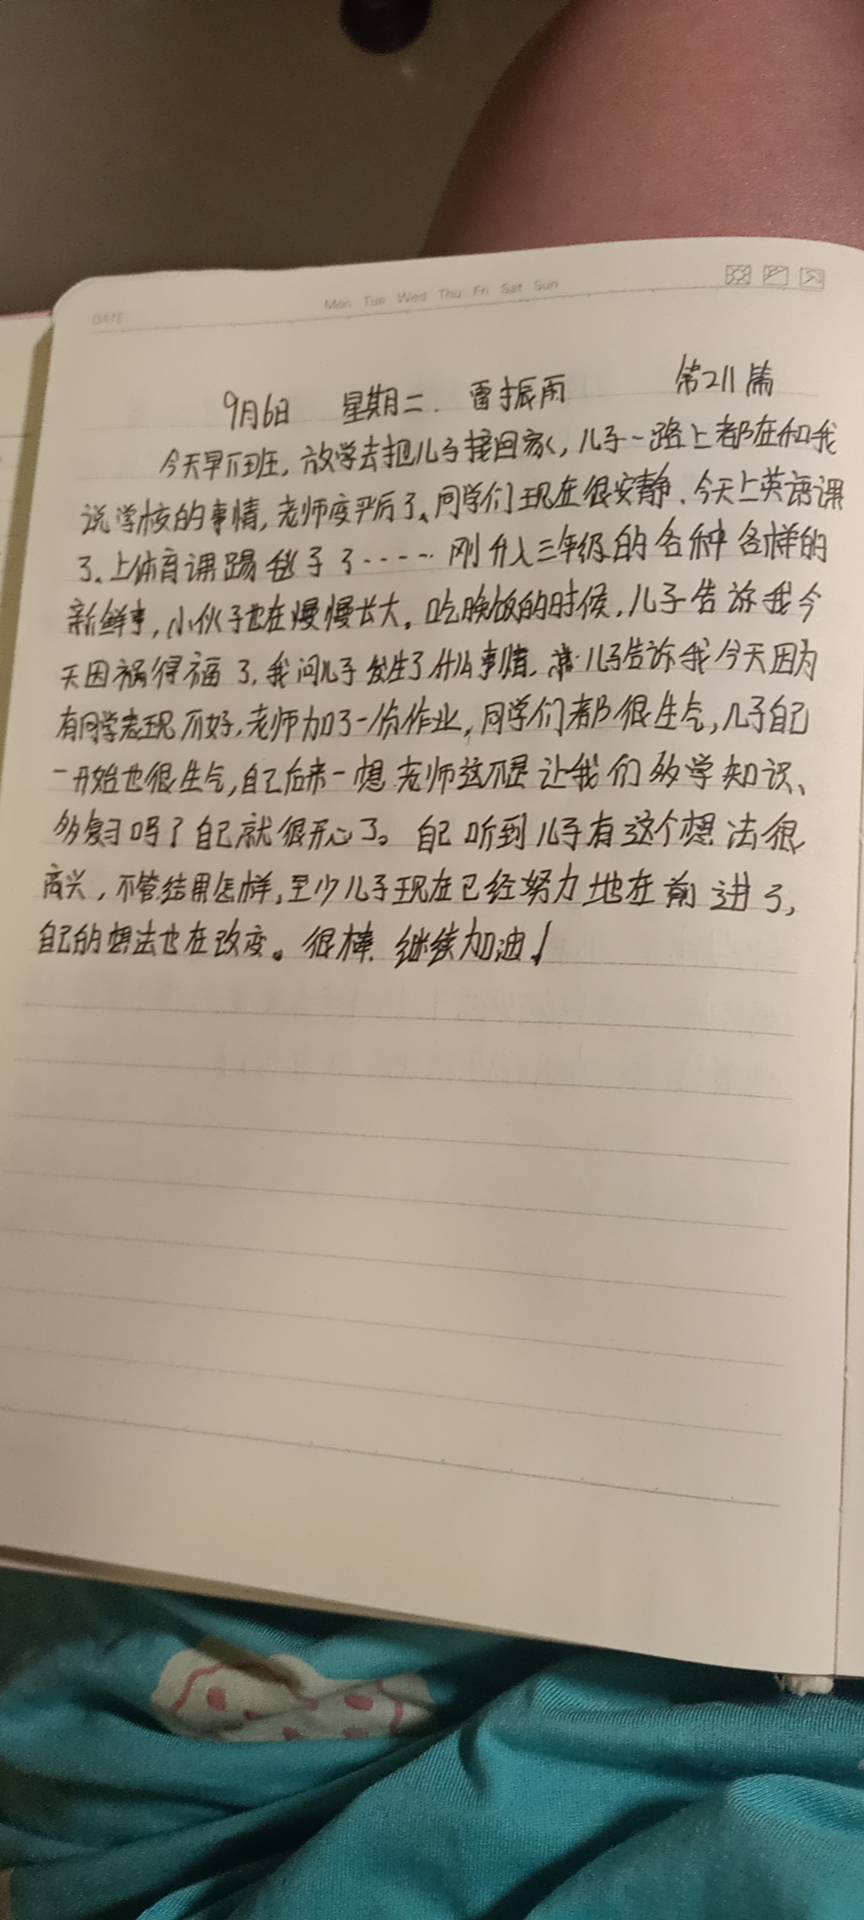 DATE
Mon Tue Wed Thu Fri Sat Sun
9月6日 星期二. 雷振雨 第211篇
今天早下班,放学去把儿子接回家,儿子一路上都在和我
说学校的事情,老师变严厉了、同学们现在很安静.今天上英语课
了.上体育课踢毽子了····· 刚升入三年级的各种各样的
新鲜事,小伙子也在慢慢长大。吃晚饭的时候,儿子告诉我今
天因祸得福了,我问儿子发生了什么事情,儿子告诉我今天因为
有同学表现不好,老师加了一份作业,同学们都很生气,儿子自己
一开始也很生气,自己后来一想老师这不是让我们多学知识、
多复习吗?自己就很开心了。自己听到儿子有这个想法很
高兴,不管结果怎样,至少儿子现在已经努力地在前进了,
自己的想法也在改变。很棒.继续加油!